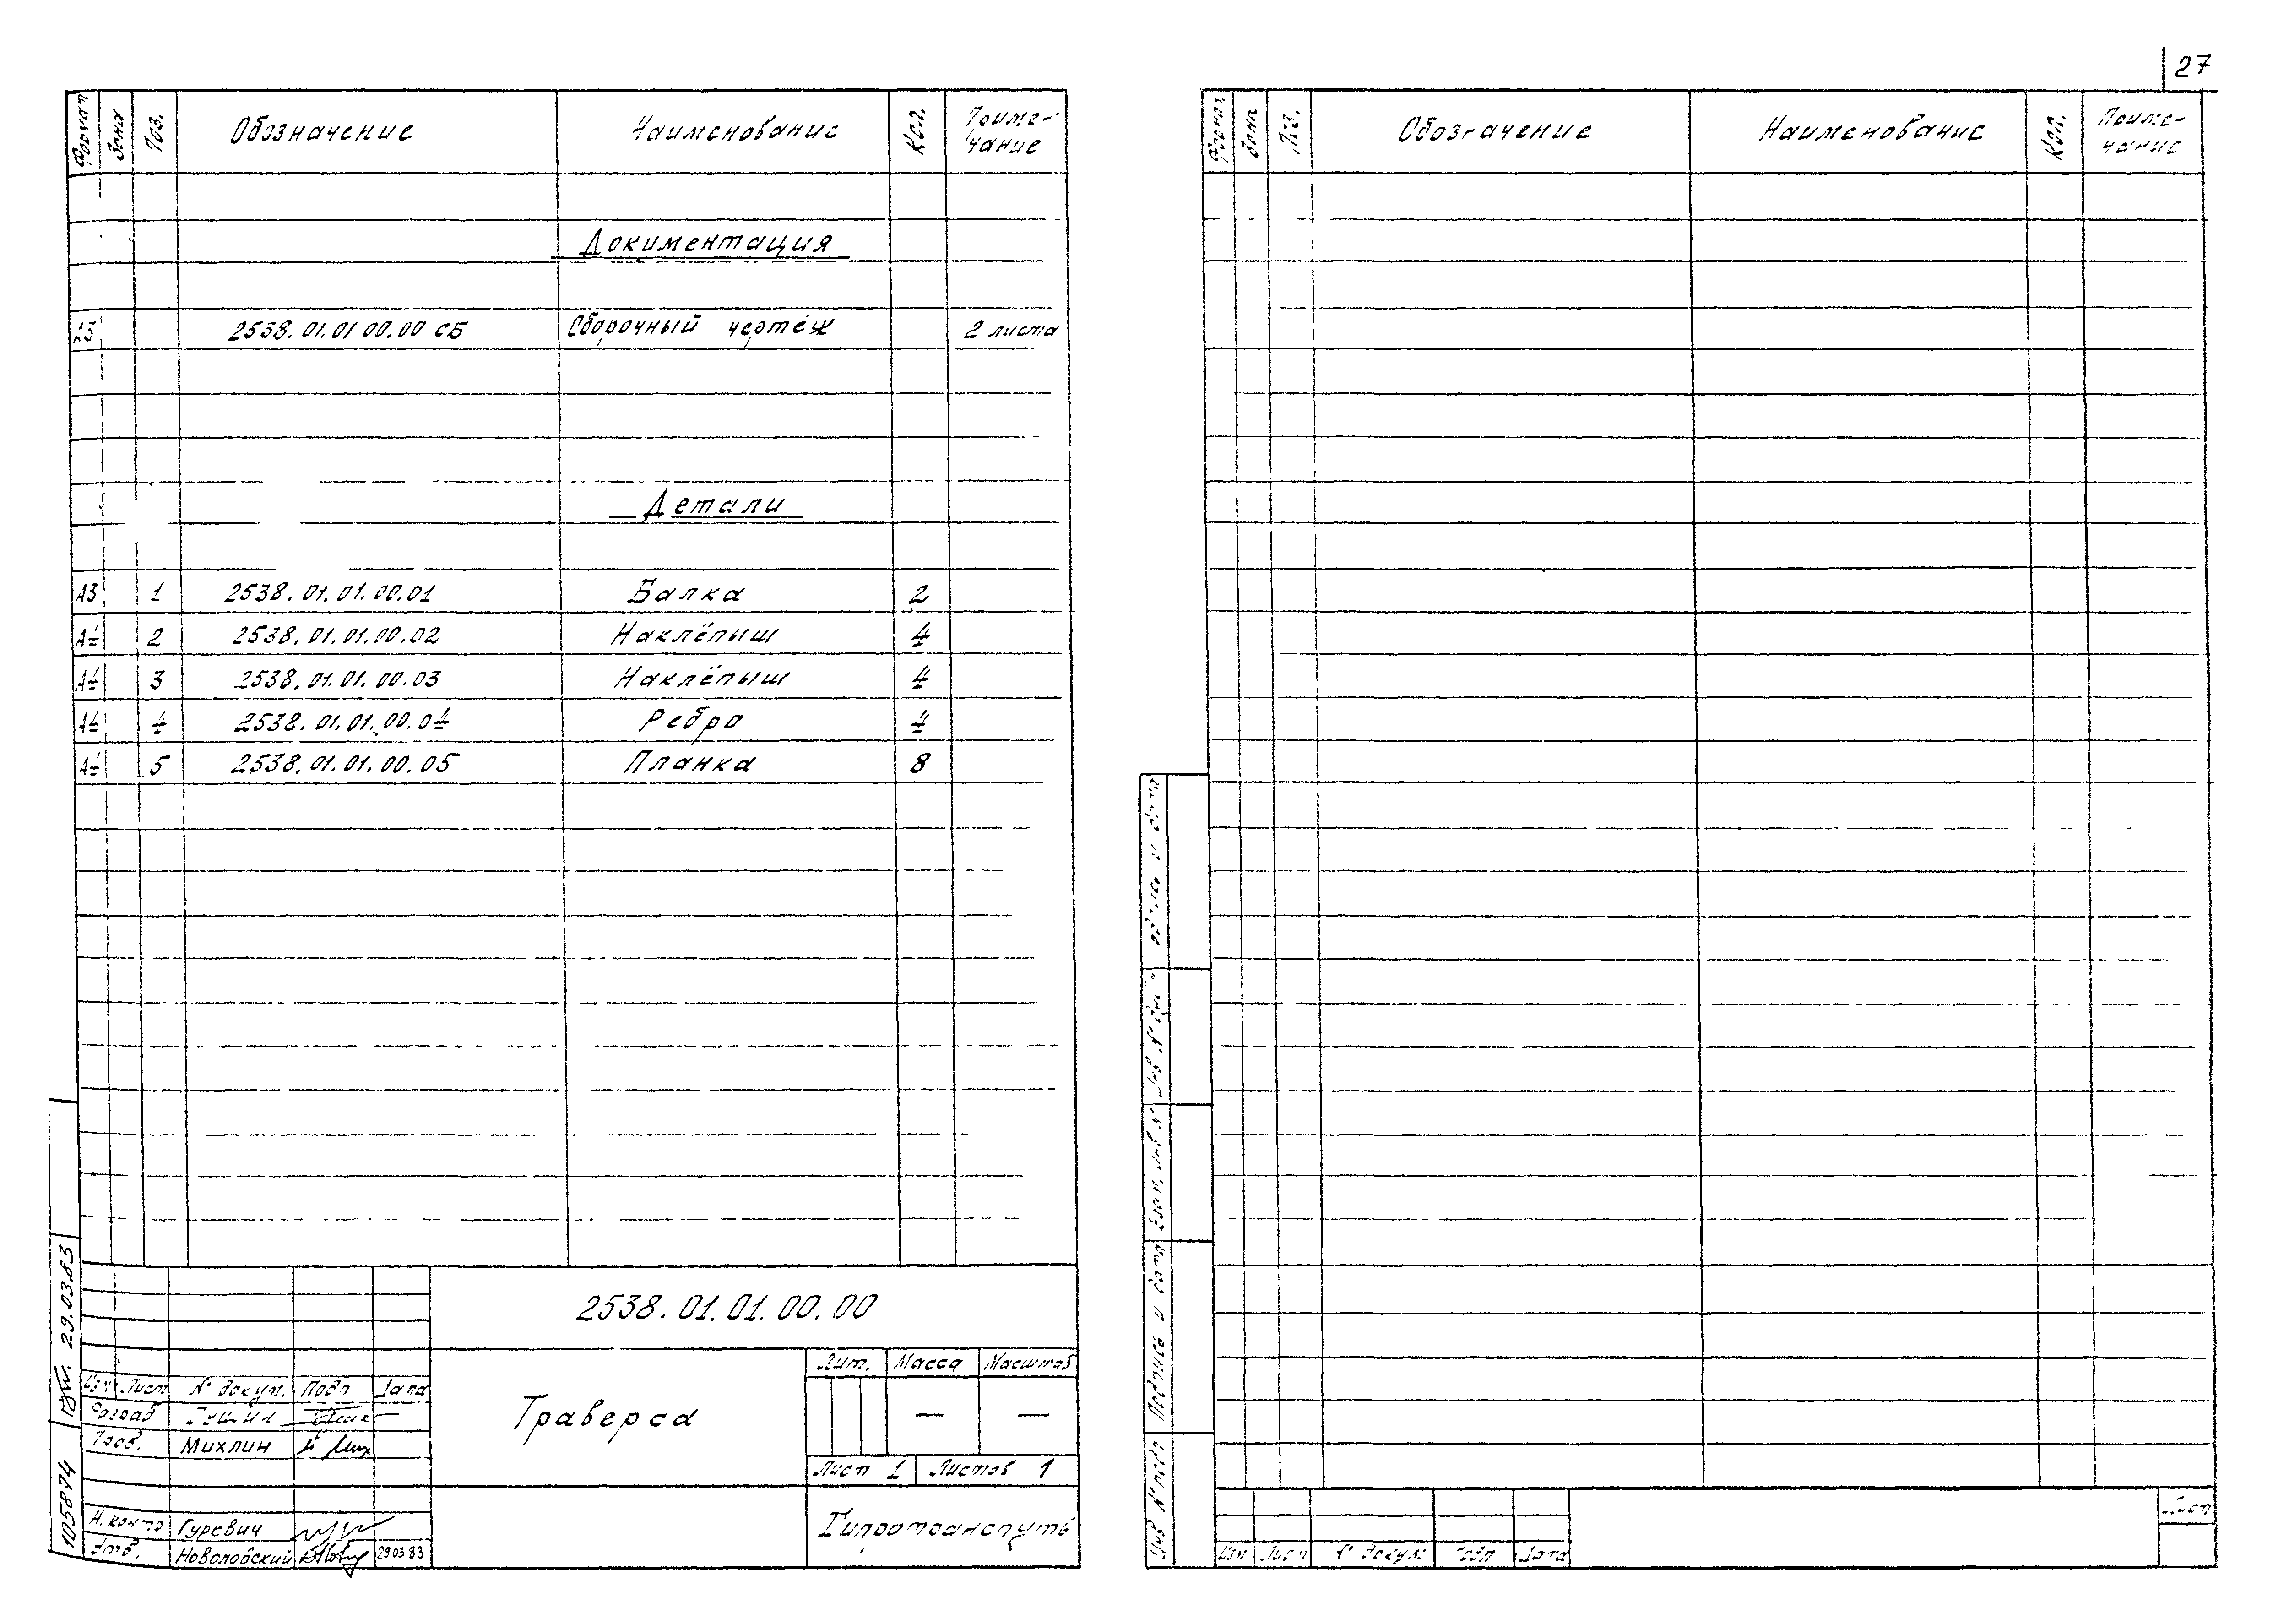 27
Формат Зона Поз. Обозначение Наименование Кол. Приме-
чание
Документация
А3 2538.01.01 00.00 СБ Сборочный чертёж 2 листа
Детали
А3 1 2538.01.01.00.01 Балка 2
А4 2 2538.01.01.00.02 Наклёпыш 4
А4 3 2538.01.01.00.03 Наклёпыш 4
А4 4 2538.01.01.00.04 Ребро 4
А4 5 2538.01.01.00.05 Планка 8
2538.01.01.00.00
Траверса
Лит. Масса Масштаб
— —
Лист 1 Листов 1
Гипроотранспуть
Изм Лист № докум. Подп Дата
Разраб
Пров. Михлин
Н. контр Гуревич
Утв. Новолодский 29 03 83
105874 29.03.83
Формат Зона Поз. Обозначение Наименование Кол. Приме-
чание
Подпись и дата
Инв № дубл
Взам. инв №
Подпись и дата
Инв № подл
Изм Лист № докум Подп Дата
Лист